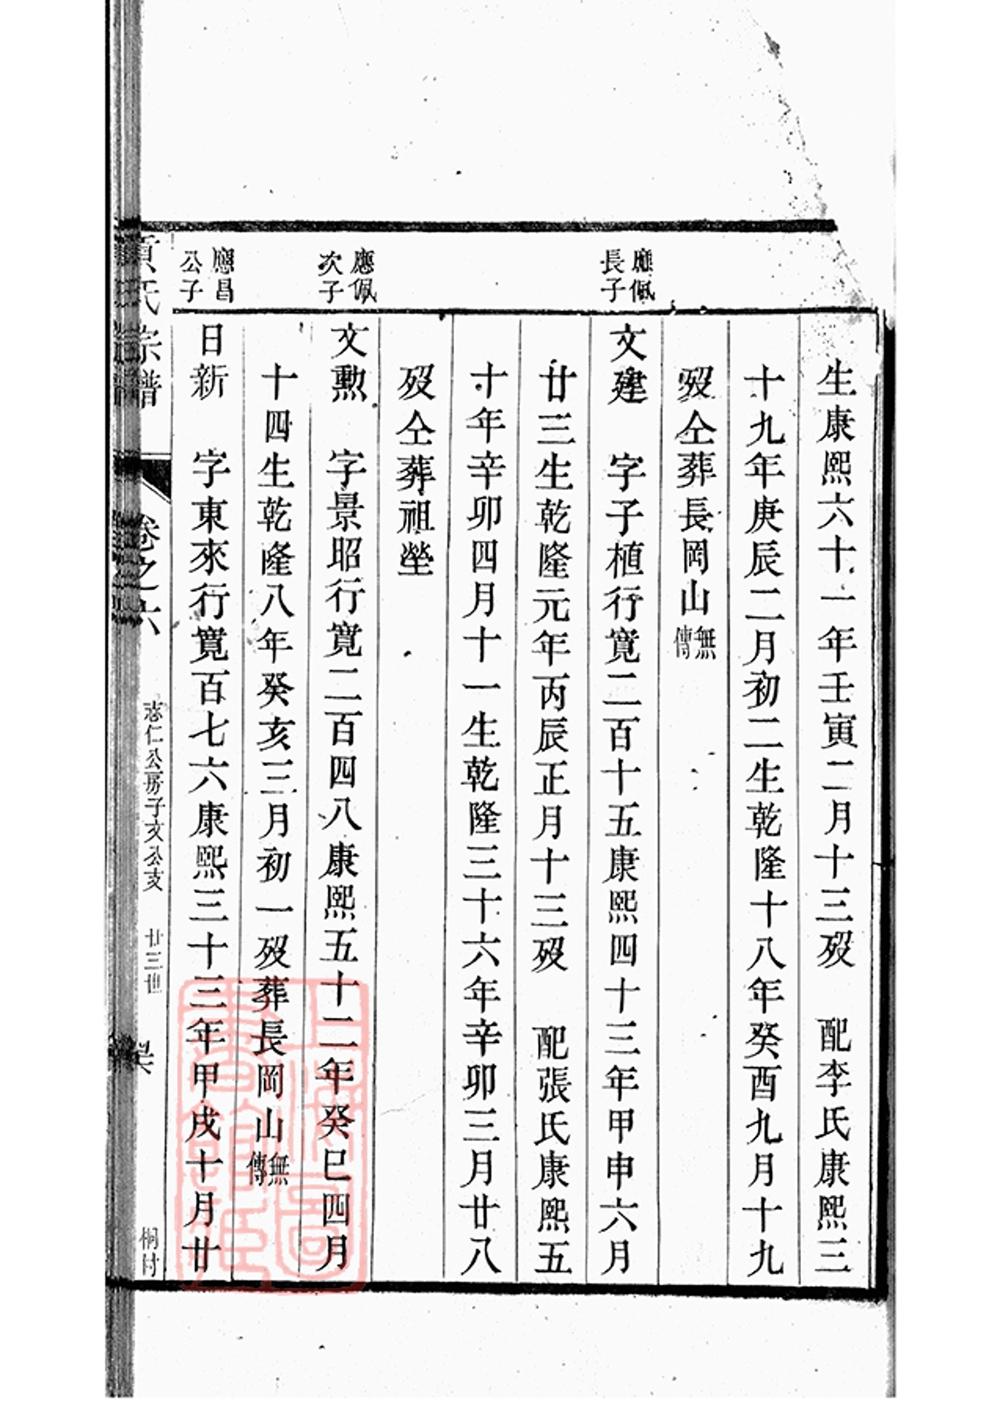 生康熙六十一年壬寅二月十三歿　配李氏康熙三
十九年庚辰二月初二生乾隆十八年癸酉九月十九
歿仝葬長岡山無傳
應佩長子
文建　字子植行寬二百十五康熙四十三年甲申六月
廿三生乾隆元年丙辰正月十三歿　配張氏康熙五
十年辛卯四月十一生乾隆三十六年辛卯三月廿八
歿仝葬祖塋
應佩次子
文勲　字景昭行寬二百四八康熙五十二年癸巳四月
十四生乾隆八年癸亥三月初一歿葬長岡山無傳
應昌公子
日新　字東來行寬百七六康熙三十三年甲戌十月廿
黃氏宗譜
卷之六
志仁公房子文公支　廿三世
桐村